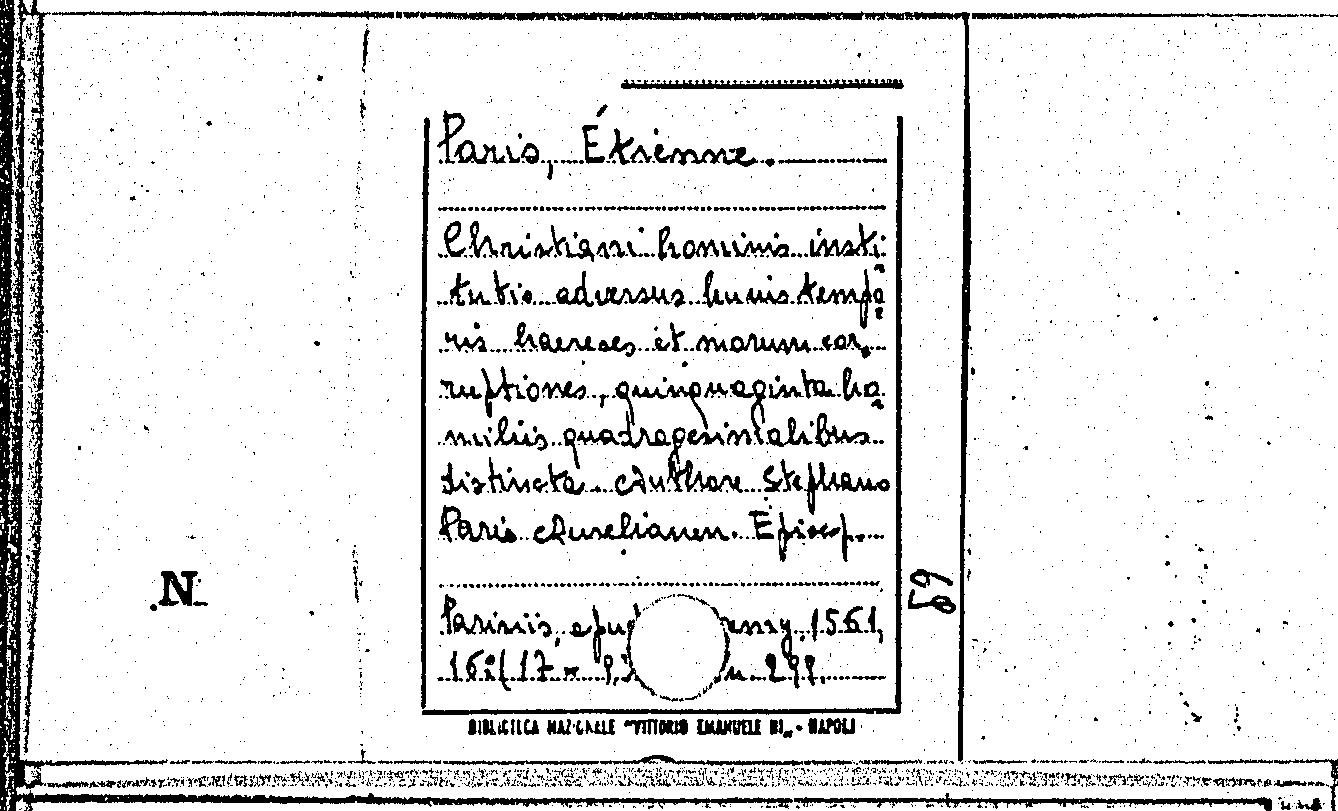 Paris, Étienne.
Christiani hominis insti
tutio adversus huius tempo
ris haereses et morum cor
ruptiones, quinquaginta ho
miliis quadragesimalibus
distincta. Authore Stephano
Paris Aurelianen. Episcop.
Parisiis, 1561,
BIBLIOTECA NAZIONALE "VITTORIO EMANUELE III" - NAPOLI
N
69